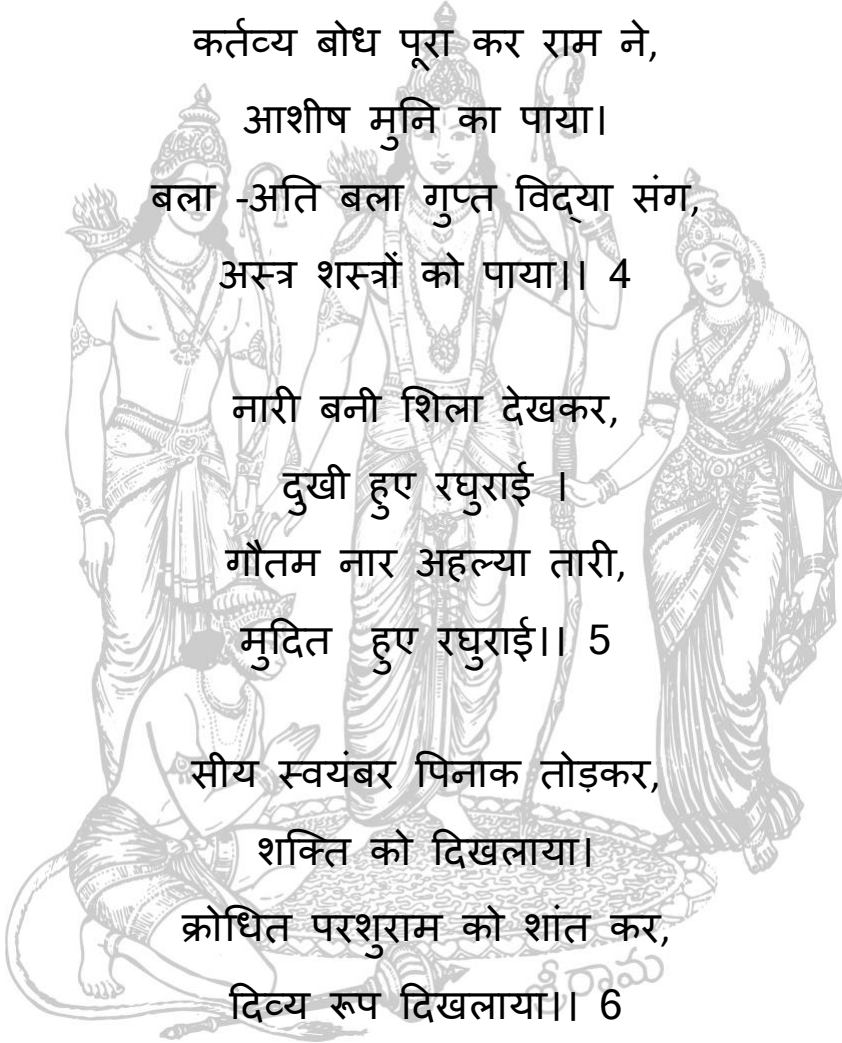 कर्तव्य बोध पूरा कर राम ने,
आशीष मुनि का पाया।
बला -अति बला गुप्त विद्या संग,
अस्त्र शस्त्रों को पाया।। 4
नारी बनी शिला देखकर,
दुखी हुए रघुराई ।
गौतम नार अहल्या तारी,
मुदित  हुए रघुराई।। 5
सीय स्वयंबर पिनाक तोड़कर,
शक्ति को दिखलाया।
क्रोधित परशुराम को शांत कर,
శ్రీరామ
दिव्य रूप दिखलाया।। 6